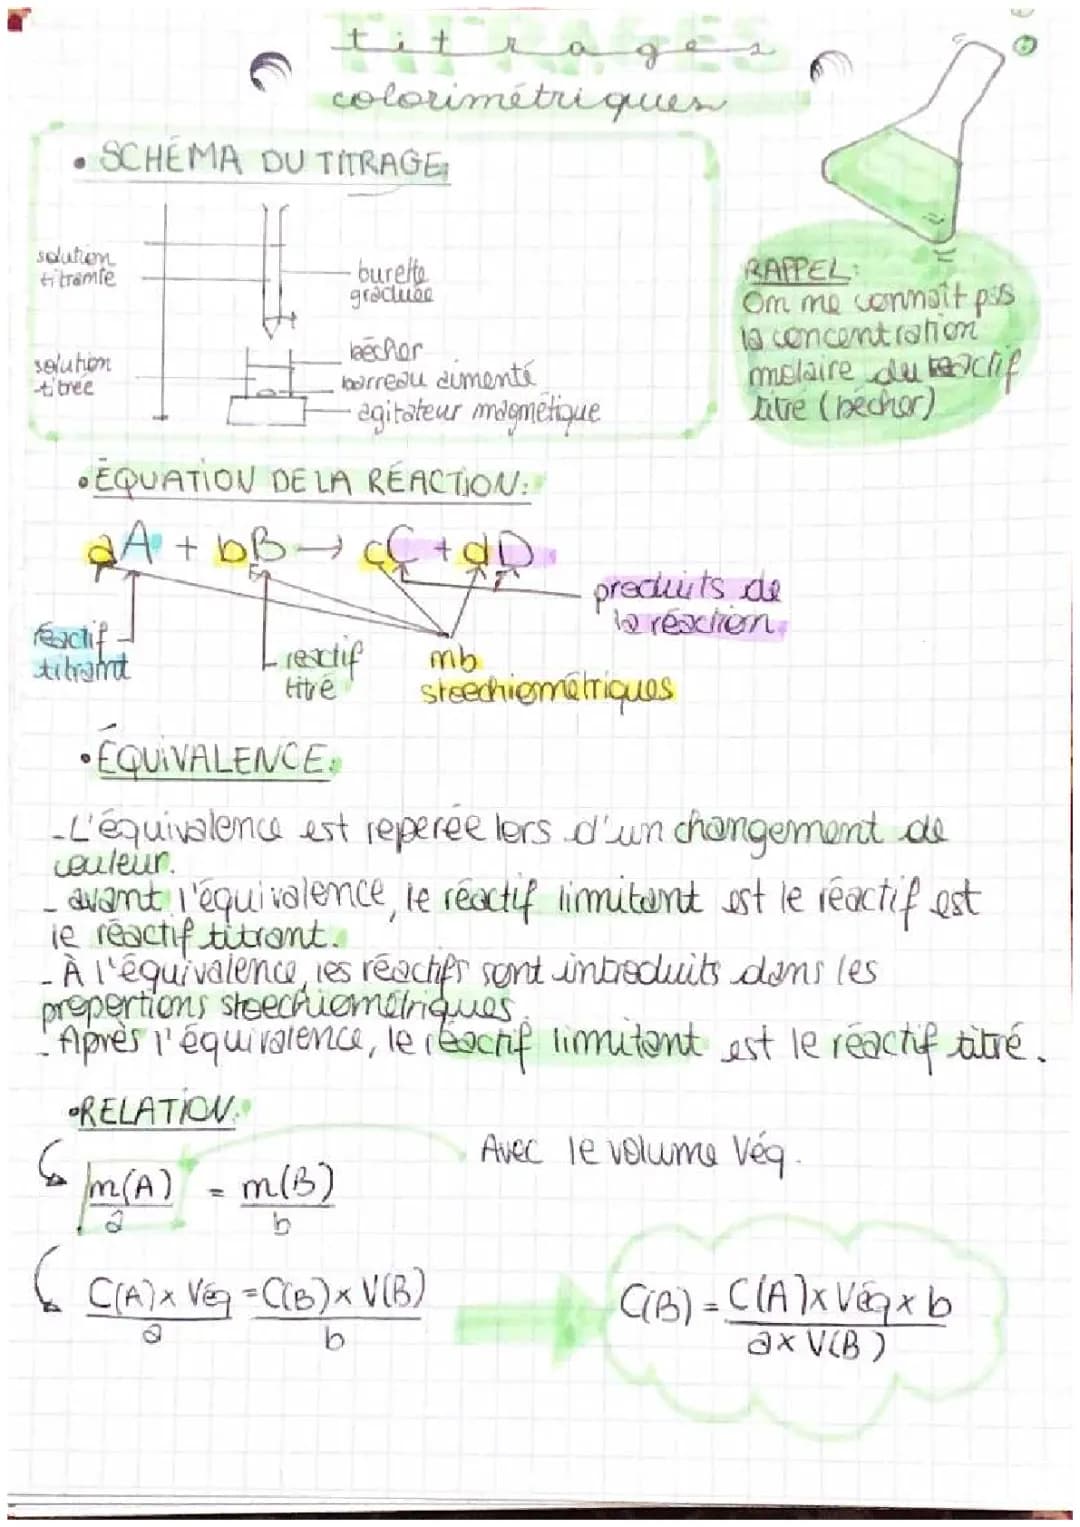 titrages
colorimétriques
• SCHÉMA DU TITRAGE:
solution
titrante
burette
graduée
solution
titrée
bécher
barreau aimenté
agitateur magnétique
RAPPEL:
On ne connaît pas
la concentration
molaire du réactif
titré (bécher)
• ÉQUATION DE LA RÉACTION:
aA + bB → cC + dD
produits de
la réaction
réactif
titrant
réactif
titré
nb
stoechiométriques
• ÉQUIVALENCE:
- L'équivalence est reperée lors d'un changement de
couleur.
- avant l'équivalence, le réactif limitant est le réactif est
le réactif titrant.
- À l'équivalence, les réactifs sont introduits dans les
proportions stoechiométriques.
- Après l'équivalence, le réactif limitant est le réactif titré.
• RELATION:
n(A)/a = n(B)/b
Avec le volume Véq.
C(A) x Véq / a = C(B) x V(B) / b
C(B) = C(A) x Véq x b / a x V(B)